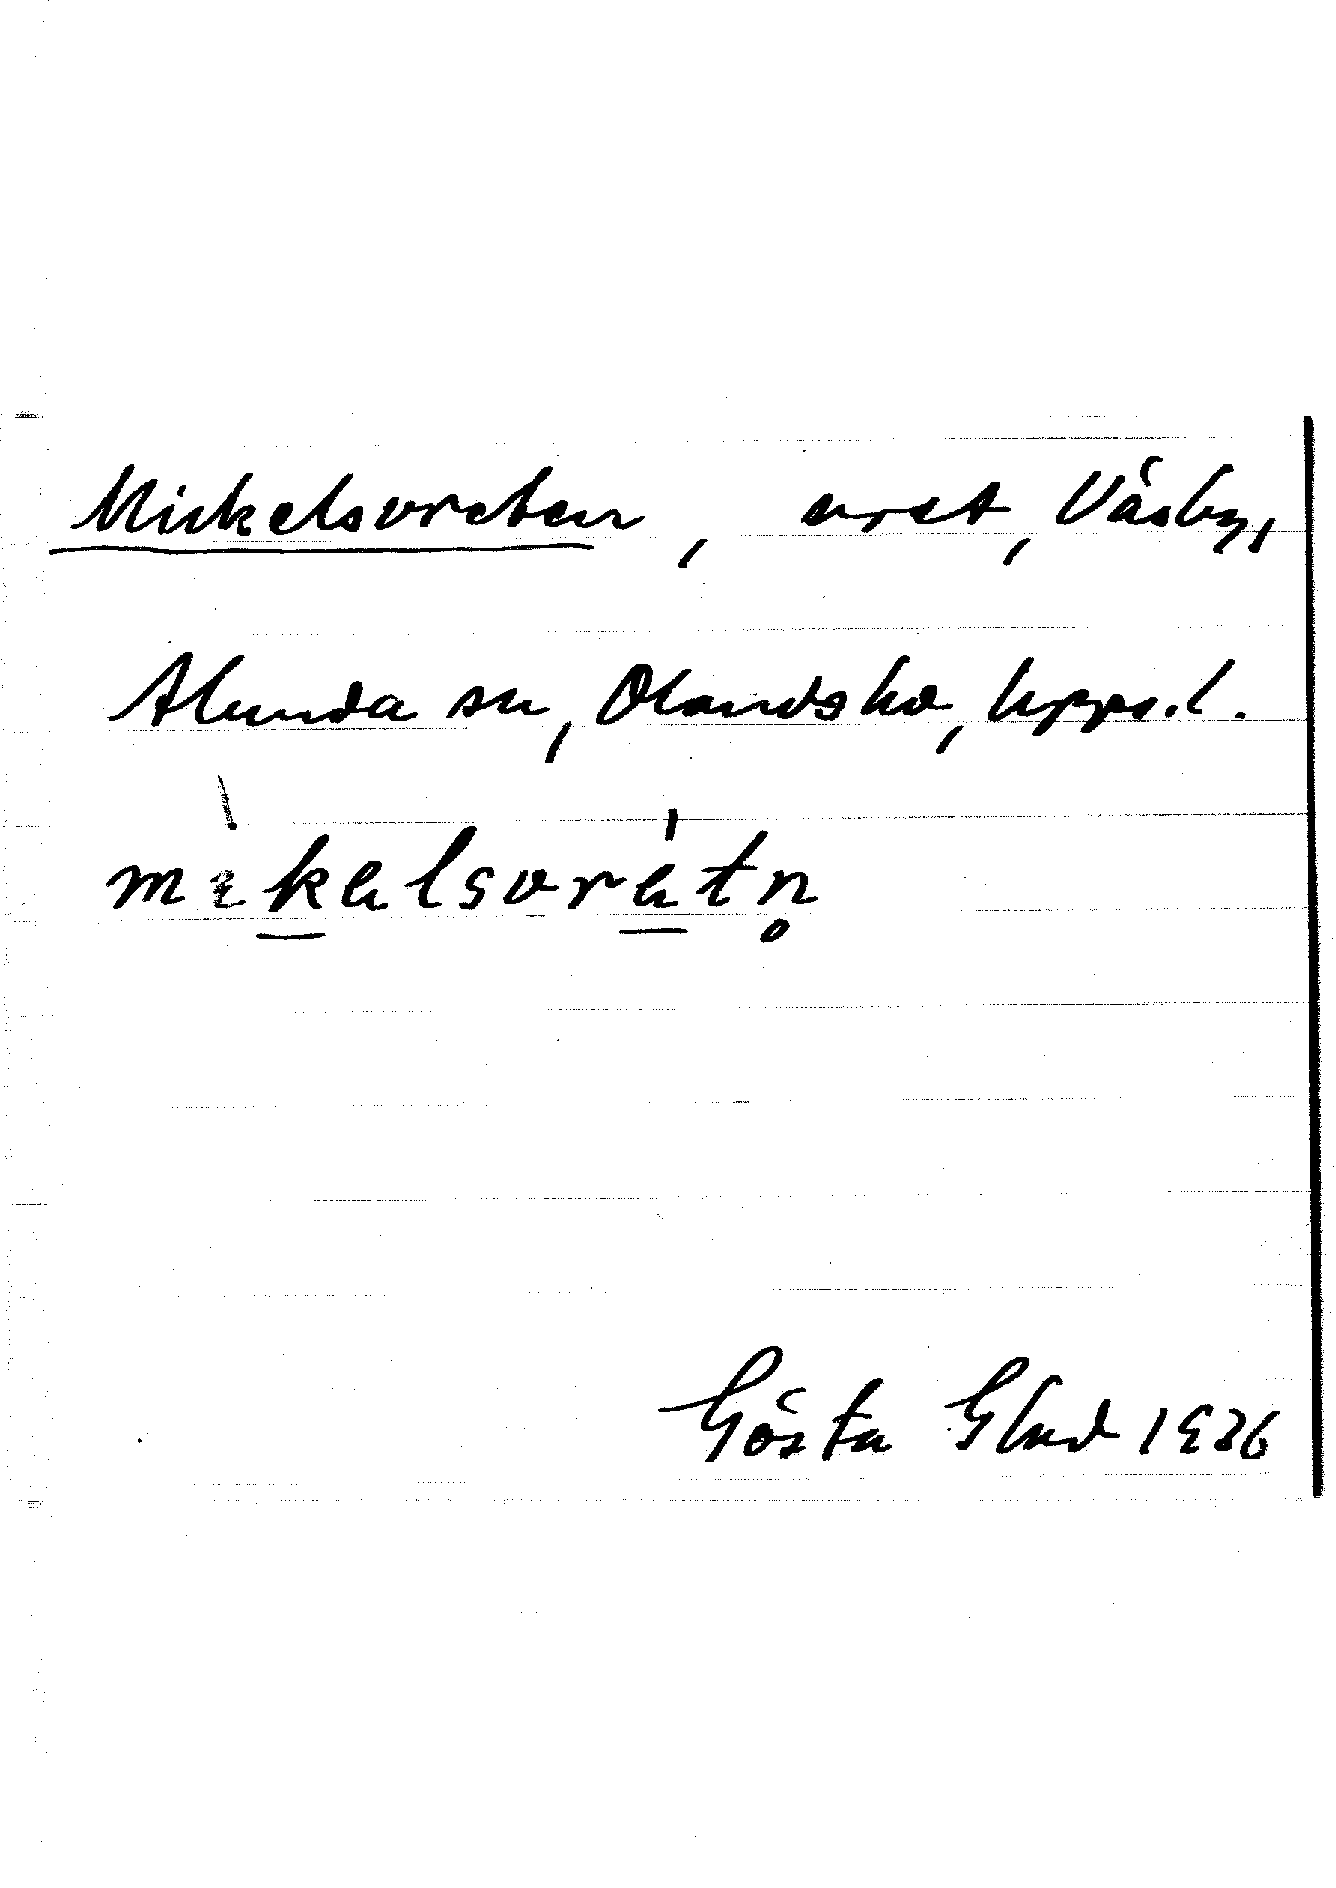 Mickelsvreten, vret, Väsby,
Alunda sn, Olands hd, Upps.l.
mikalsvrätn̥
Gösta Glad 1926